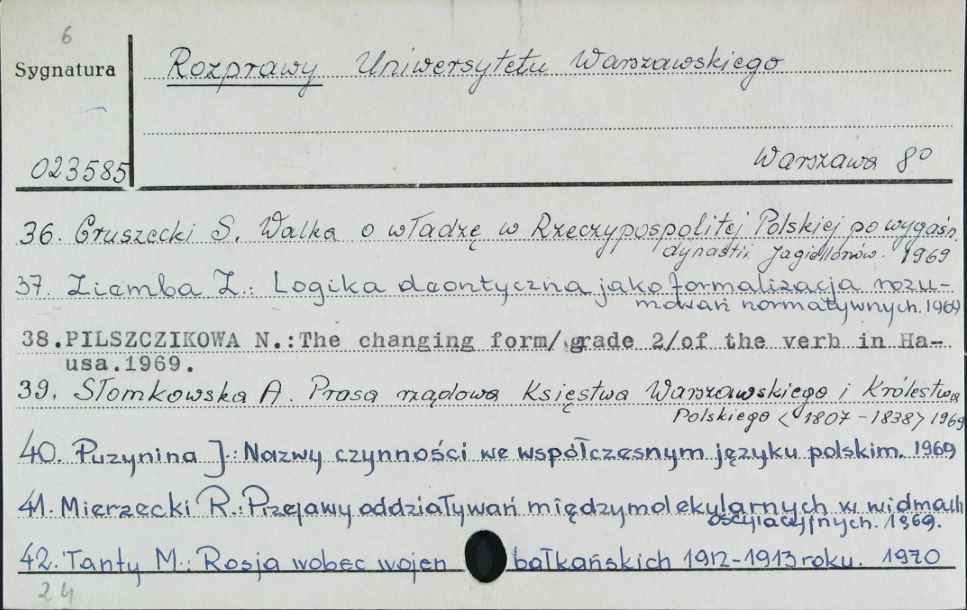 6
Sygnatura
Rozprawy Uniwersytetu Warszawskiego
023585
Warszawa 8°
36. Gruszecki S. Walka o władzę w Rzeczypospolitej Polskiej po wygaśn.
dynastii Jagiellonów. 1969
37. Ziemba Z.: Logika deontyczna jako formalizacja rozu-
mowań normatywnych. 1969
38. PILSZCZIKOWA N.:The changing form/grade 2/of the verb in Ha-
usa.1969.
39. Słomkowska A. Prasa rządowa Księstwa Warszawskiego i Królestwa
Polskiego <1807-1838> 1969
40. Puzynina J.: Nazwy czynności we współczesnym języku polskim. 1969
41. Mierzecki R.: Przejawy oddziaływań międzymolekularnych w widmach
oscylacyjnych. 1969.
42. Tanty M.: Rosja wobec wojen bałkańskich 1912-1913 roku. 1970
24